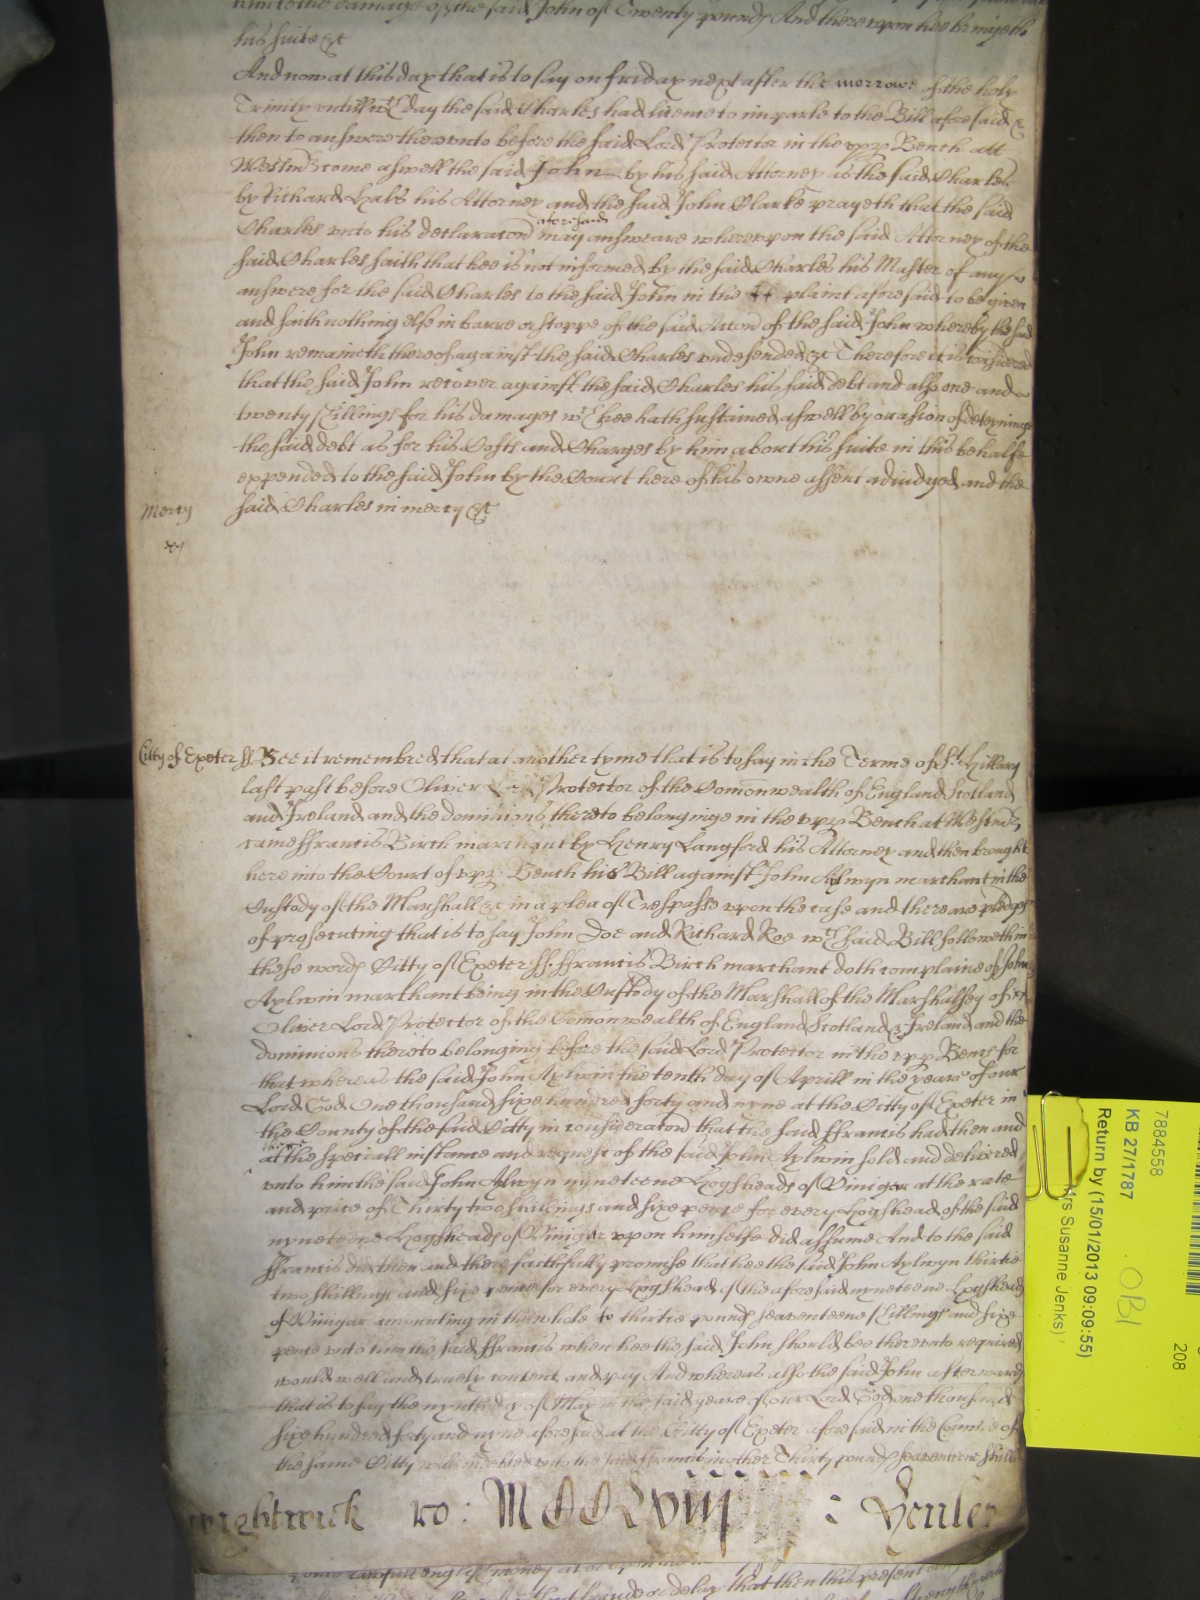 him to the damage of the said John of Twenty pounds And thereupon hee bringeth
his suite &c
And now at this day that is to say on friday next after the morrowe of the holy
Trinity untill wch day the said Charles had licence to imparle to the Bill aforesaid &
then to answere thereunto before the said Lord Protector in the upp Bench att
Westmr come aswell the said John by his said Attorney as the said Charles
by Richard Hals his Attorney and the said John Clarke prayeth that the said
Charles unto his declaracon aforesaid may answeare whereupon the said Attorney of the
said Charles saith that hee is not informed by the said Charles his Master of any
answere for the said Charles to the said John in the plaint aforesaid to be given
and saith nothing else in barre or stoppe of the said Accon of the said John whereby the said
John remaineth thereof against the said Charles undefended &c Therefore it is considered
that the said John recover against the said Charles his said debt and also one and
twenty shillings for his damages wch hee hath sustained aswell by occasion of deteyninge
the said debt as for his Costs and Charges by him about his suite in this behalfe
expended to the said John by the Court here of his owne assent adiudged and the
Mercy said Charles in mercy &c
Citty of Exeter ss Bee it remembred that at another tyme that is to say in the Terme of St Hillary
last past before Oliver Lord Protector of the Comonwealth of England Scotland
and Ireland and the dominions thereto belonginge in the upp Bench at Westmr
came ffrancis Birch marchant by Henry Langford his Attorney and then brought
here into the Court of upp Bench his Bill against John Aylwyn marchant in the
Custody of the Marshall &c in a plea of Trespasse upon the case and there are pledges
of prosecuting that is to say John Doe and Richard Roe wch said Bill followeth in
these words Citty of Exeter ss ffrancis Birch marchant doth complaine of John
Aylwin marchant being in the Custody of the Marshall of the Marshalsey of
Oliver Lord Protector of the Comonwealth of England Scotland & Ireland and the
dominions thereto belonging before the said Lord Protector in the upp Bench for
that whereas the said John Aylwin the tenth day of Aprill in the yeare of our
Lord God One thousand sixe hundred forty and nyne at the Citty of Exeter in
the County of the said Citty in consideracon that the said ffrancis had then and
there at the speciall instance and request of the said John Aylwin sold and delivered
unto him the said John Aylwyn nyneteene Hogsheads of Viniger at the rate
and price of Thirty two shillings and sixe pence for every Hogshead of the said
nyneteene Hogsheads of Viniger upon himselfe did assume And to the said
ffrancis did then and there faithfully promise that hee the said John Aylwyn thirtie
two shillings and sixe pence for every Hogshead of the aforesaid nyneteene Hogsheads
of Vinigar amounting in the whole to thirtie pounds seaventeene shillings and sixe
pence unto him the said ffrancis when hee the said John should bee thereunto required
would well and truely content and pay And whereas also the said John afterwards
that is to say the nynth day of May in the said yeare of our Lord God one thousand
sixe hundred forty and nyne aforesaid at the Citty of Exeter aforesaid in the Countie of
the same Citty was indebted unto the said ffrancis in other Thirty pounds seaventeene shill
wightwick ro: : Henley
7884558
KB 27/1787 OB1
Return by (15/01/2013 09:09:55)
Mrs Susanne Jenks)
208